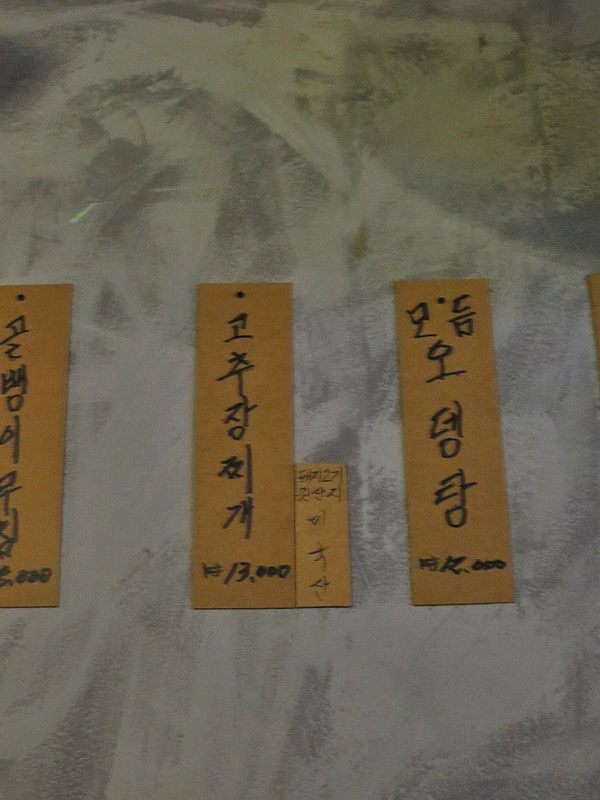 골뱅이무침
5.000
고추장찌개
₩13.000
돼지고기
원산지
미국산
모듬
오뎅탕